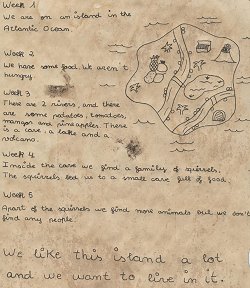 Week 1
We are on an island in the
Atlantic Ocean.
Week 2
We have some food. We aren't
hungry.
Week 3
There are 2 rivers, and there
are some potatos, tomatos,
mangos and pineapples. There
is a cave, a lake and a
volcano.
Week 4
Inside the cave we find a family of squirrels.
The squirrels led us to a small cave full of food.
Week 5
Apart of the squirrels we find more animals but we don't
find any people.
We like this island a lot
and we want to live in it.